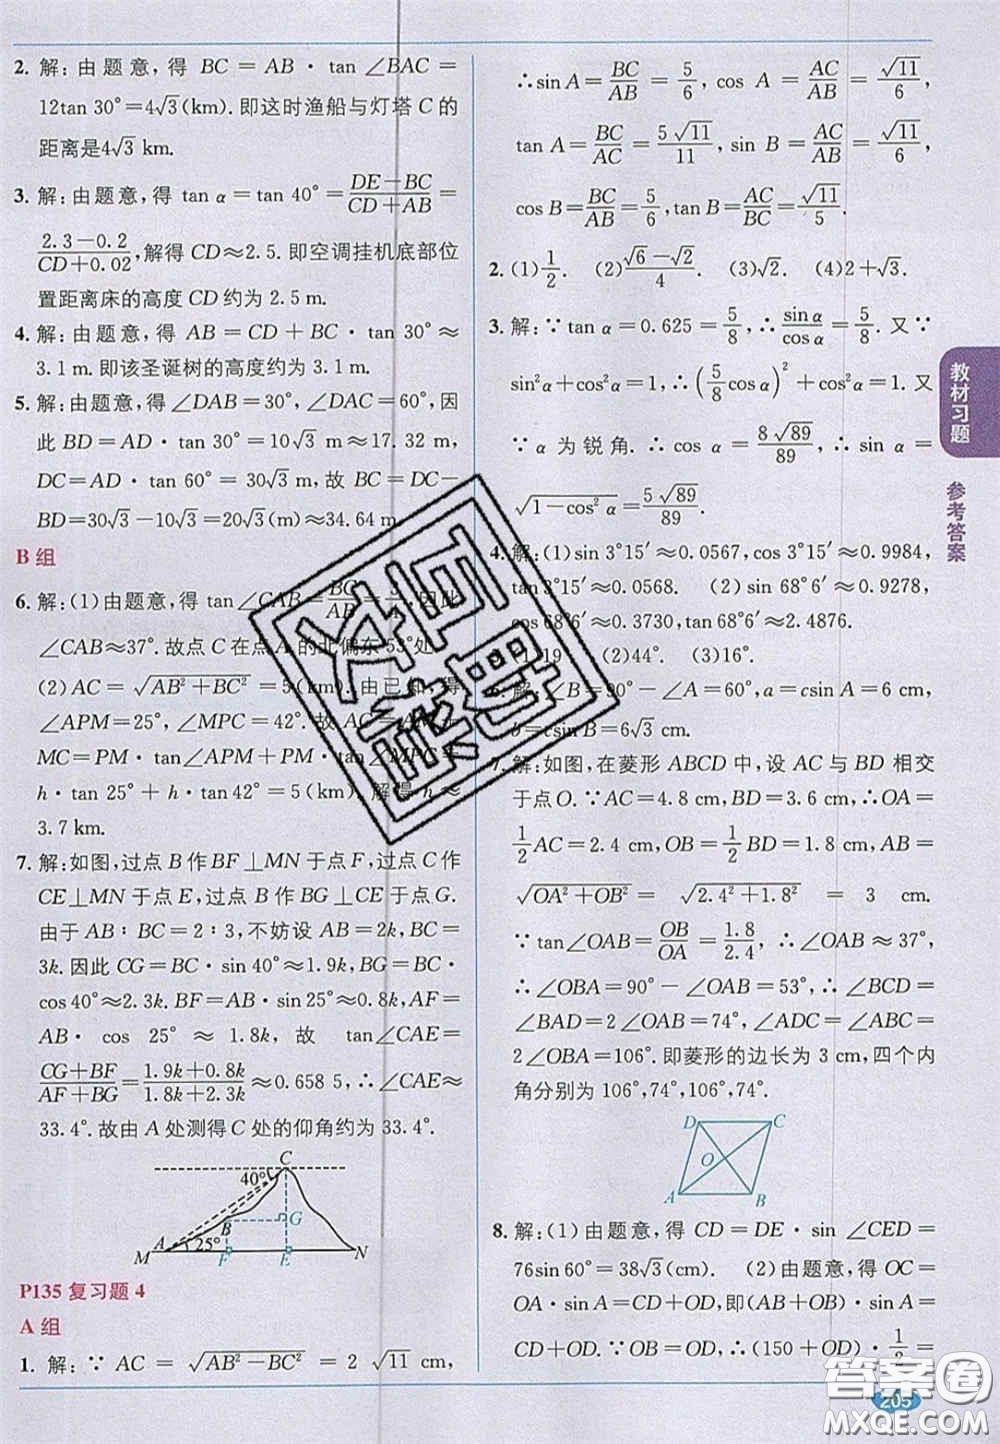 2. 解:由题意,得 BC=AB·tan∠BAC=
12tan 30°=4√3(km).即这时渔船与灯塔 C 的
距离是4√3 km.
3. 解:由题意,得 tan α=tan 40°=(DE-BC)/(CD+AB)=
(2.3-0.2)/(CD+0.02),解得CD≈2.5.即空调挂机底部位
置距离床的高度 CD 约为 2.5 m.
4. 解:由题意,得 AB=CD+BC·tan 30°≈
3.1 m.即该圣诞树的高度约为 3.1 m.
5. 解:由题意,得∠DAB=30°,∠DAC=60°,因
此 BD=AD·tan 30°=10√3 m≈17.32 m,
DC=AD·tan 60°=30√3 m,故 BC=DC-
BD=30√3-10√3=20√3(m)≈34.64 m.
B 组
6. 解:(1)由题意,得 tan∠CAB=BC/AB= .因此
∠CAB≈37°.故点 C 在点 A 的北偏东 53°处.
(2)AC=√(AB²+BC²)=5(km).由已知,得
∠APM=25°,∠MPC=42°.故 AC=AM+
MC=PM·tan∠APM+PM·tan∠MPC=
h·tan 25°+h·tan 42°=5(km).解得 h≈
3.7 km.
7. 解:如图,过点 B 作 BF⊥MN 于点 F,过点 C 作
CE⊥MN 于点 E,过点 B 作 BG⊥CE 于点 G.
由于 AB∶BC=2∶3,不妨设 AB=2k,BC=
3k.因此 CG=BC·sin 40°≈1.9k,BG=BC·
cos 40°≈2.3k.BF=AB·sin 25°≈0.8k,AF=
AB·cos 25°≈1.8k,故 tan∠CAE=
(CG+BF)/(AF+BG)≈(1.9k+0.8k)/(1.8k+2.3k)≈0.658 5,∠CAE≈
33.4°.故由 A 处测得 C 处的仰角约为 33.4°.
C
40°
B
G
A
25°
M
F
E
N
P135 复习题 4
A 组
1. 解:∵AC=√(AB²-BC²)=2√11 cm,
∴sin A=BC/AB=5/6,cos A=AC/AB=√11/6,
tan A=BC/AC=5√11/11,sin B=AC/AB=√11/6,
cos B=BC/AB=5/6,tan B=AC/BC=√11/5.
2. (1)1/2. (2)(√6-√2)/4. (3)√2. (4)2+√3.
3. 解:∵tan α=0.625=5/8,∴sin α/cos α=5/8.又∵
sin²α+cos²α=1,∴(5/8 cos α)²+cos²α=1.又
∵α 为锐角.∴cos α=8√89/89.∴sin α=
√(1-cos²α)=5√89/89.
4. 解:(1)sin 3°15′≈0.0567,cos 3°15′≈0.9984,
tan 3°15′≈0.0568. (2)sin 68°6′≈0.9278,
cos 68°6′≈0.3730,tan68°6′≈2.4876.
(2)44°. (3)16°.
6. 解:∠B=90°-∠A=60°,a=csin A=6 cm,
b=csin B=6√3 cm.
7. 解:如图,在菱形 ABCD 中,设 AC 与 BD 相交
于点O.∵AC=4.8 cm,BD=3.6 cm,∴OA=
1/2 AC=2.4 cm,OB=1/2 BD=1.8 cm.∴AB=
√(OA²+OB²)=√(2.4²+1.8²)=3 cm.
∵tan∠OAB=OB/OA=1.8/2.4,∴∠OAB≈37°,
∴∠OBA=90°-∠OAB=53°,∴∠BCD=
∠BAD=2∠OAB=74°,∠ADC=∠ABC=
2∠OBA=106°.即菱形的边长为 3 cm,四个内
角分别为 106°,74°,106°,74°.
D
C
O
A
B
8. 解:(1)由题意,得 CD=DE·sin∠CED=
76sin 60°=38√3(cm). (2)由题意,得 OC=
OA·sin∠OAC=CD+OD,即(AB+OB)·1/2=
CD+OD.∵OB=OD,∴(150+OD)·1/2=
教材习题
参考答案
205
答案卷
MXQE.COM